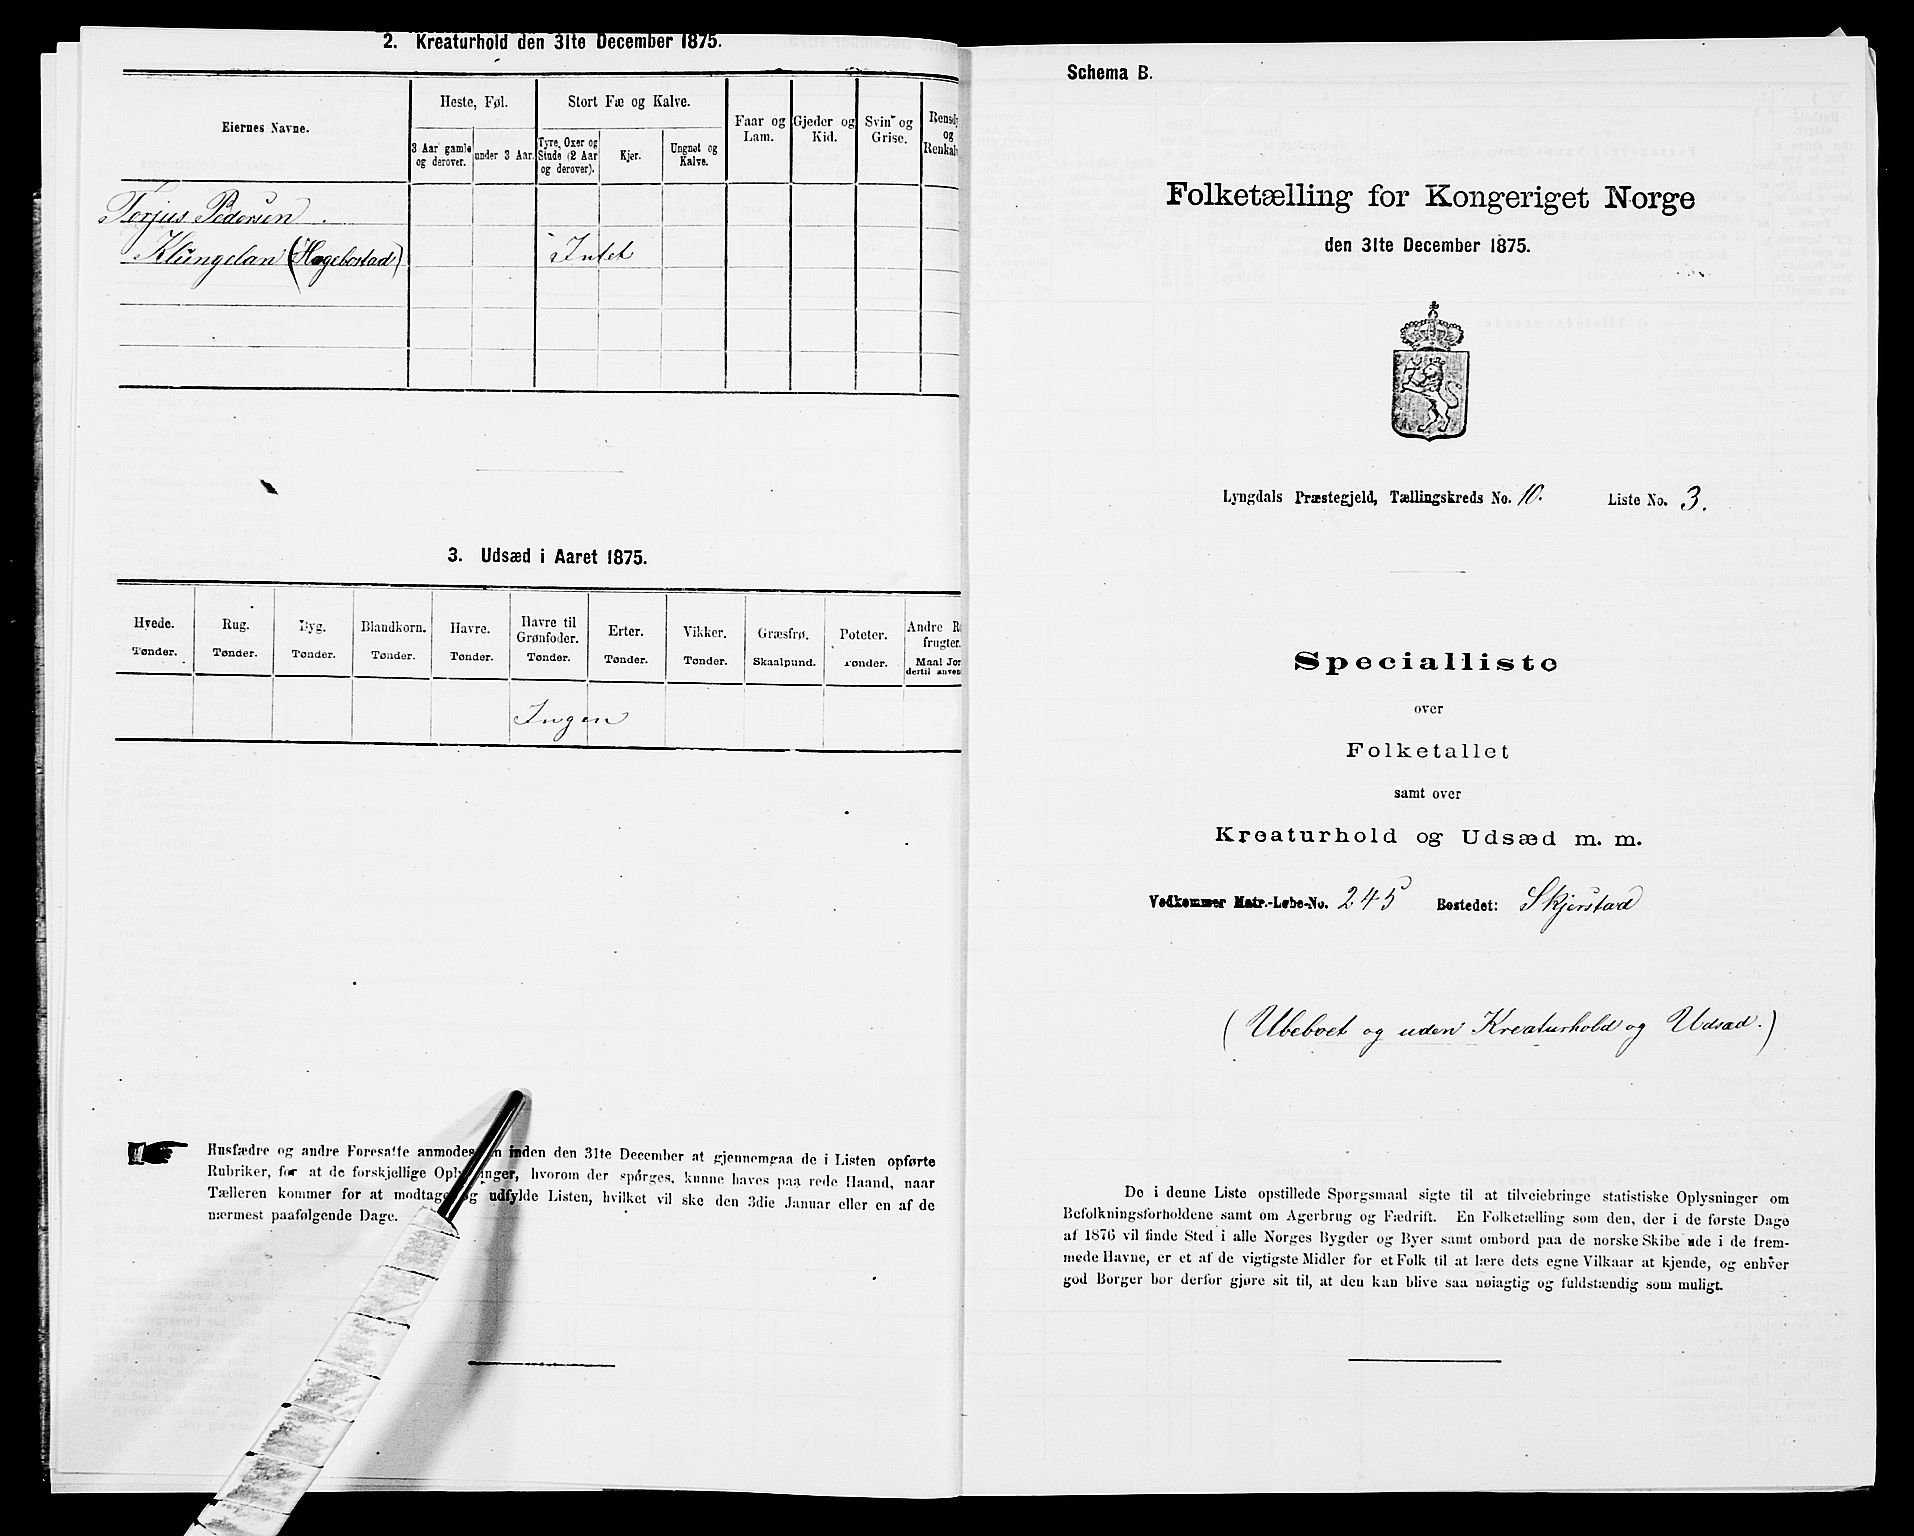 2. Kreaturhold den 31te December 1875.
Eiernes Navne.
Heste, Føl.
3 Aar gamle
og derover.
under 3 Aar.
Stort Fæ og Kalve.
Tyre, Oxer og
Stude (2 Aar
og derover).
Kjør.
Ungnøt og
Kalve.
Faar og
Lam.
Gjeder og
Kid.
Svin og
Grise.
Rensdy
og
Renkalv
Terjus Pedersen.
Klungelan (Hægebostad) Intet
3. Udsæd i Aaret 1875.
Hvede.
Tønder.
Rug.
Tønder.
Byg.
Tønder.
Blandkorn.
Tønder.
Havre.
Tønder.
Havre til
Grønfoder.
Tønder.
Erter.
Tønder.
Vikker.
Tønder.
Græsfrø.
Skaalpund.
Poteter.
Tønder.
Andre R
frugter.
Maal Jor
dertil anven
Ingen
Husfædre og andre Foresatte anmodes inden den 31te December at gjennemgaa de i Listen opførte
Rubriker, for at de forskjellige Oplysninger, hvorom der spørges, kunne haves paa rede Haand, naar
Tælleren kommer for at modtage og udfylde Listen, hvilket vil ske den 3die Januar eller en af de
nærmest paafølgende Dage.
Schema B.
Folketælling for Kongeriget Norge
den 31te December 1875.
Lyngdals Præstegjeld, Tællingskreds No. 10. Liste No. 3.
Specialliste
over
Folketallet
samt over
Kreaturhold og Udsæd m. m.
Vedkommer Matr.-Løbe-No. 245 Bostedet: Skjerstad
(Ubeboet og uden Kreaturhold og Udsæd.)
De i denne Liste opstillede Spørgsmaal sigte til at tilveiebringe statistiske Oplysninger om
Befolkningsforholdene samt om Agerbrug og Fædrift. En Folketælling som den, der i de første Dage
af 1876 vil finde Sted i alle Norges Bygder og Byer samt ombord paa de norske Skibe ude i de frem-
mede Havne, er et af de vigtigste Midler for et Folk til at lære dets egne Vilkaar at kjende, og enhver
god Borger bør derfor gjøre sit til, at den kan blive saa nøiagtig og fuldstændig som muligt.